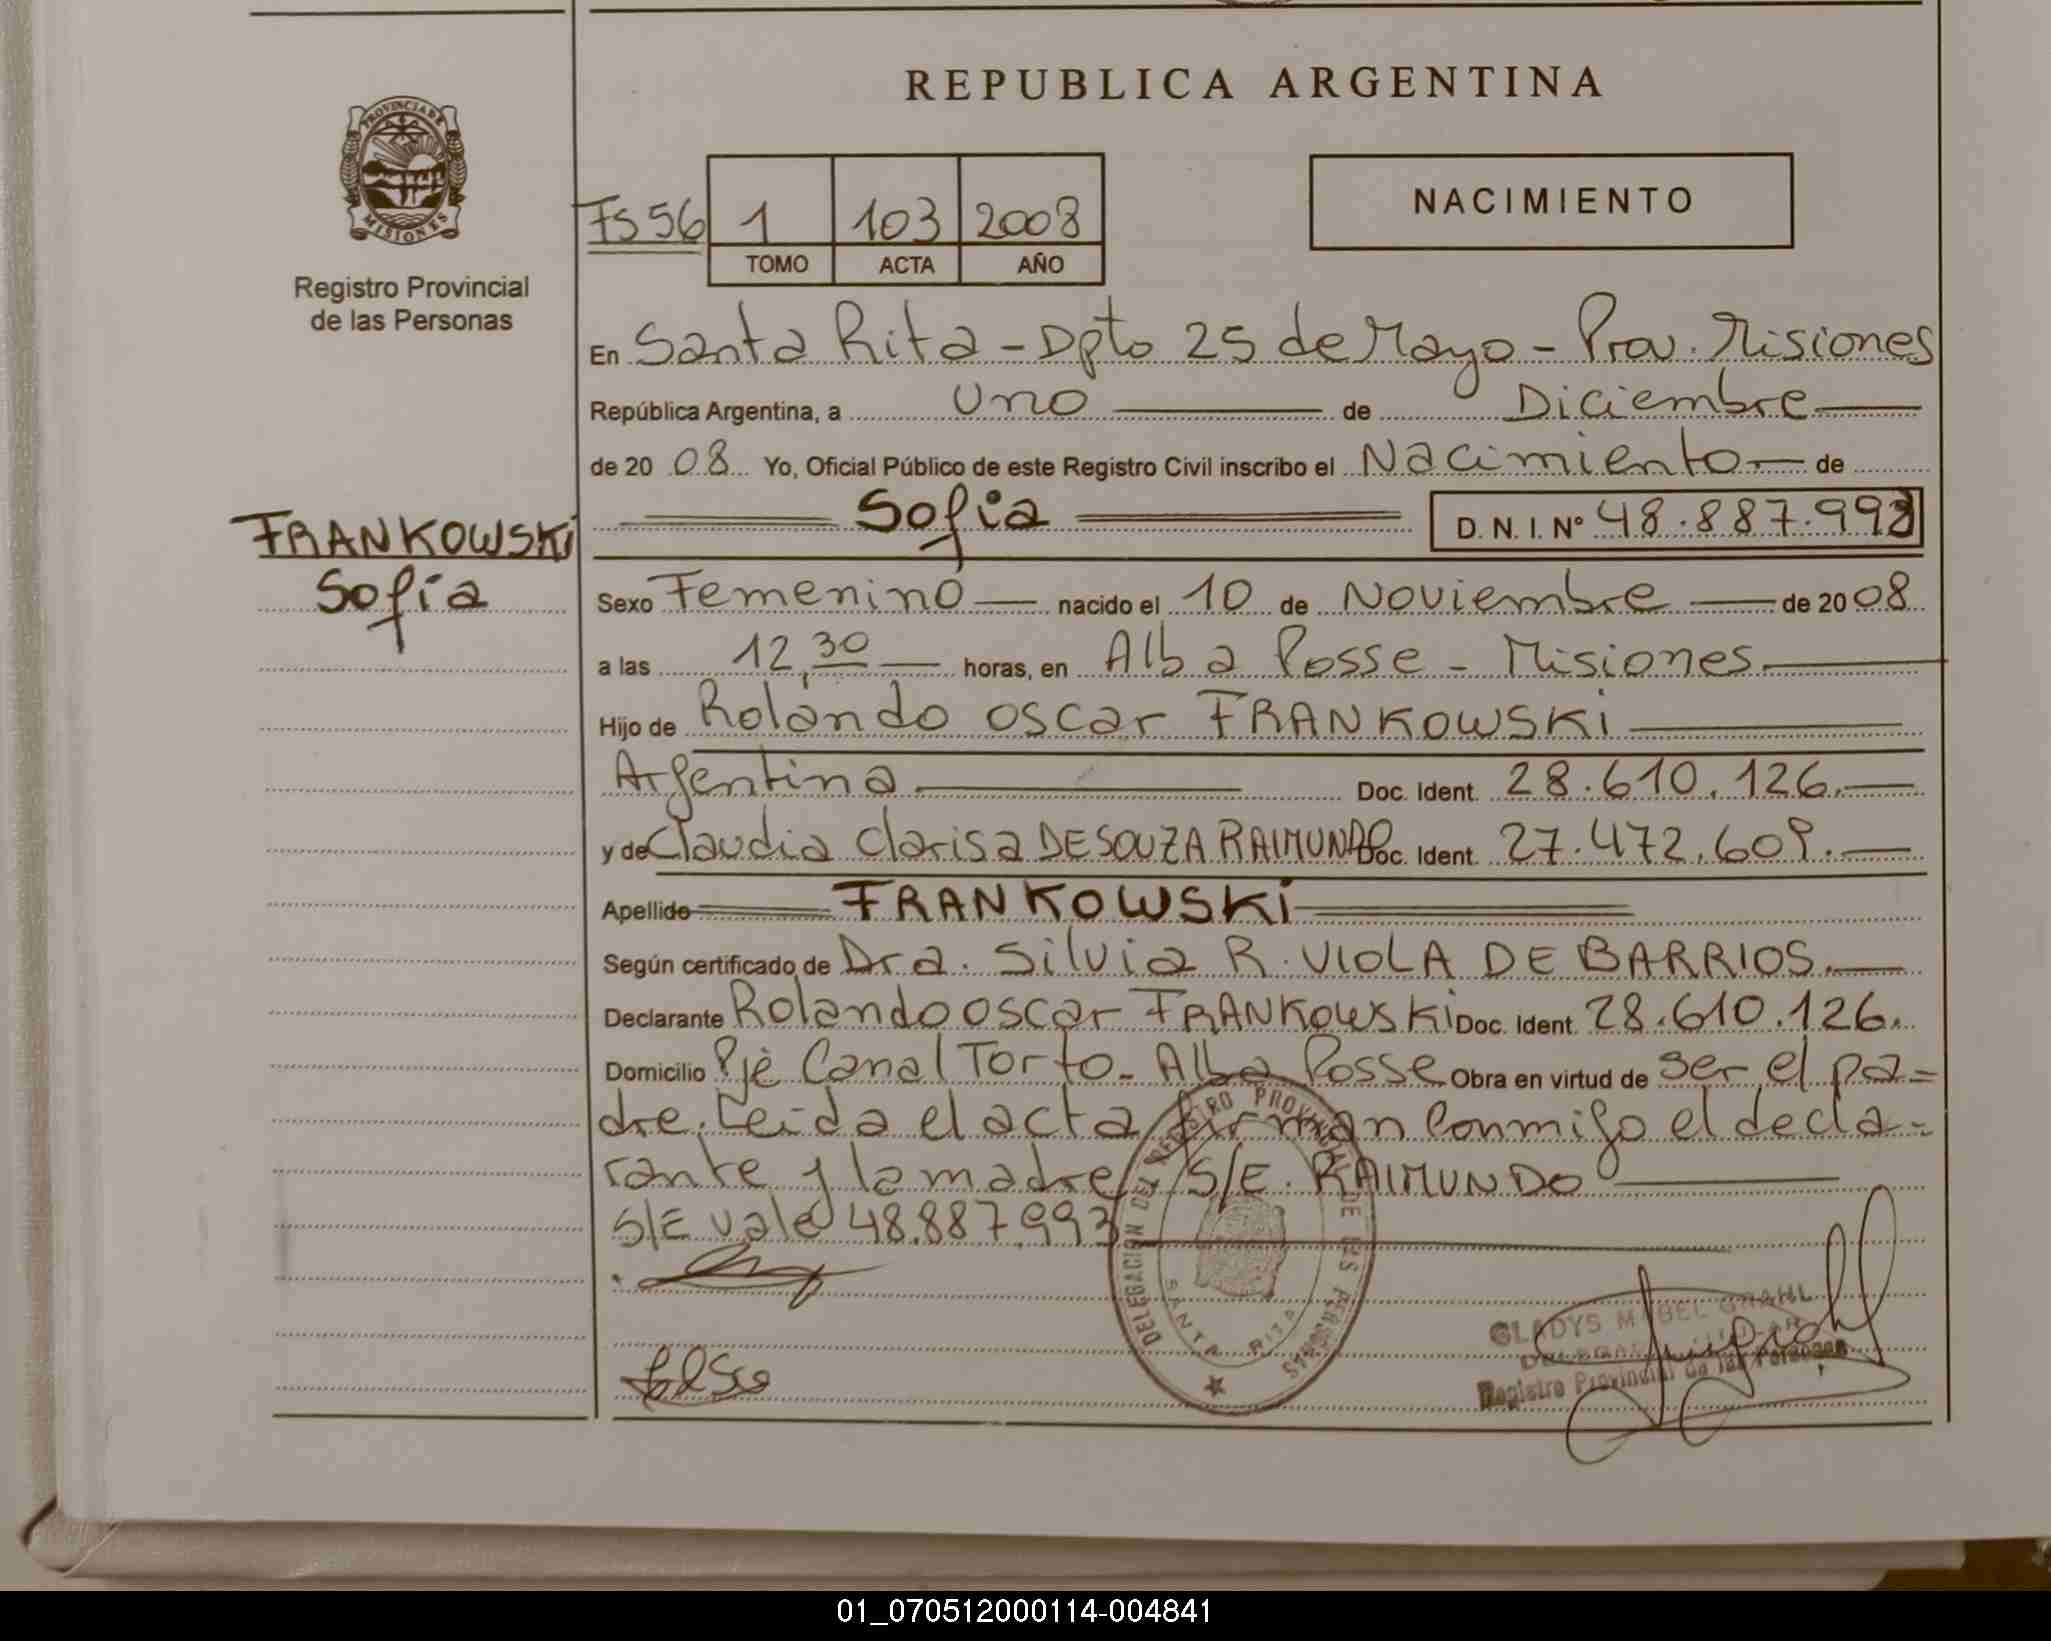 REPUBLICA ARGENTINA
PROVINCIA DE
MISIONES
Registro Provincial
de las Personas
NACIMIENTO
Fs 56 1 103 2008
TOMO ACTA AÑO
En Santa Rita - Dpto 25 de Mayo - Prov. Misiones
República Argentina, a Uno de Diciembre
de 20 08 Yo, Oficial Público de este Registro Civil inscribo el Nacimiento de
Sofia D. N. I. Nº 48.887.993
FRANKOWSKi
Sofía
Sexo Femenino nacido el 10 de Noviembre de 20 08
a las 12,30 horas, en Alba Posse - Misiones
Hijo de Rolando oscar FRANKOWSKi
Argentina Doc. Ident. 28.610.126.
y de Claudia Clarisa DE SOUZA RAIMUNDO Doc. Ident. 27.472.609.
Apellido FRANKOWSKi
Según certificado de Dra. Silvia R. VIOLA DE BARRIOS.
Declarante Rolando oscar FRANKOWSKi Doc. Ident. 28.610.126.
Domicilio Pje Canal Torto - Alba Posse Obra en virtud de ser el pa=
dre. Leida el acta firman conmigo el decla=
rante y la madre S/E. RAIMUNDO
S/E vale 48.887.993
DELEGACION DEL REGISTRO PROVINCIAL DE LAS PERSONAS
SANTA RITA
GLADYS MABEL GRAHL
Registro Provincial de las Personas
01_070512000114-004841